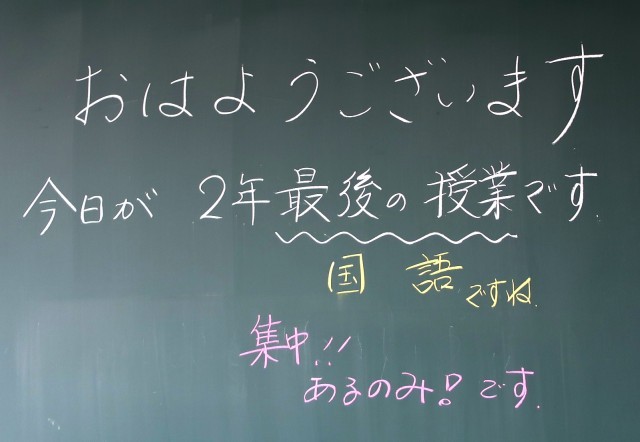 おはようございます
今日が 2年最後の授業です.
国語ですね.
集中!!
あるのみ!です.